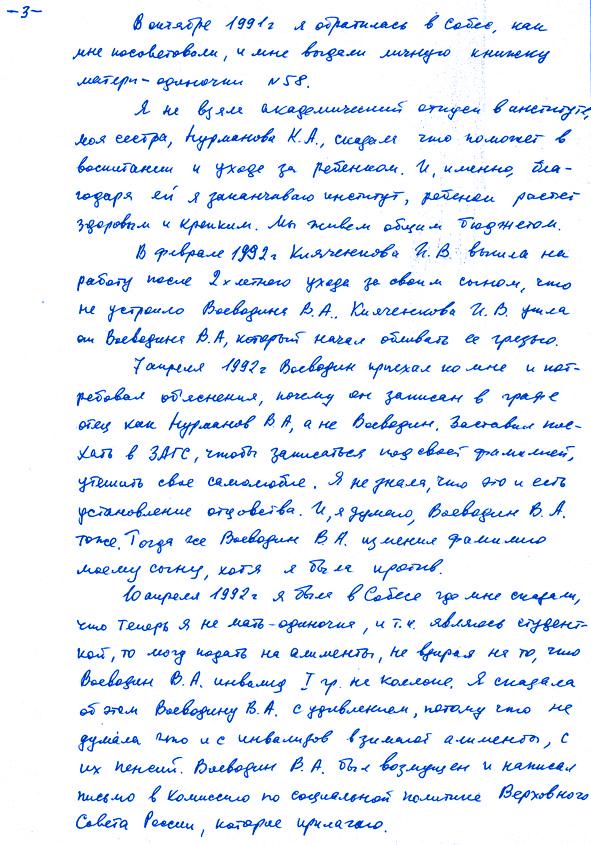 -3-
В октябре 1991г я обратилась в Собес, как
мне посоветовали, и мне выдали личную книжку
матери-одиночки №58.
Я не взяла академический отпуск в институте,
моя сестра, Нурманова К.А., сказала что поможет в
воспитании и уходе за ребенком. И, именно, бла-
годаря ей я заканчиваю институт, ребенок растет
здоровым и крепким. Мы живем общим бюджетом.
В феврале 1992г Кляченкова И.В. вышла на
работу после 2хлетнего ухода за своим сыном, что
не устроило Воеводина В.А.. Кляченкова И.В. ушла
от Воеводина В.А, который начал обливать ее грязью.
7 апреля 1992г Воеводин приехал ко мне и пот-
ребовал объяснения, почему он записан в графе
отец как Нурманов В.А, а не Воеводин. Заставил пое-
хать в ЗАГС, чтобы записаться под своей фамилией,
утешить свое самолюбие. Я не знала, что это и есть
установление отцовства. И, я думаю, Воеводин В.А.
тоже. Тогда же Воеводин В.А. изменил фамилию
моему сыну, хотя я была против.
10 апреля 1992г я была в Собесе где мне сказали,
что теперь я не мать-одиночка, и т.к. являюсь студент-
кой, то могу подать на алименты, не взирая на то, что
Воеводин В.А. инвалид I гр. на коляске. Я сказала
об этом Воеводину В.А. с удивлением, потому что не
думала что и с инвалидов взимают алименты, с
их пенсий. Воеводин В.А. был возмущен и написал
письмо в Комиссию по социальной политике Верховного
Совета России, которое прилагаю.